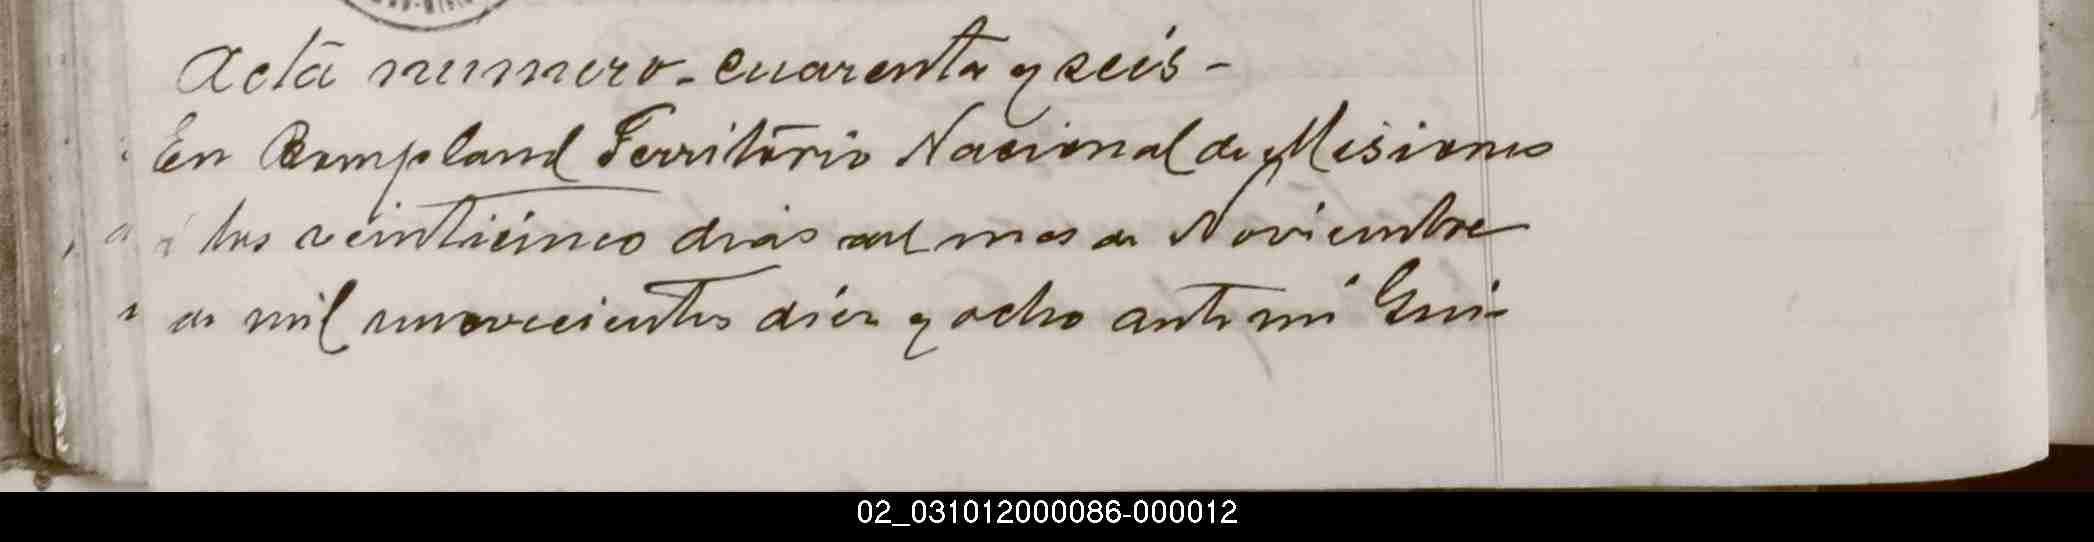 Acta numero. cuarenta y seis -
En Bompland Territorio Nacional de Misiones
á los veinticinco dias del mes de Noviembre
de mil novecientos diez y ocho ante mi Gui-
02_031012000086-000012